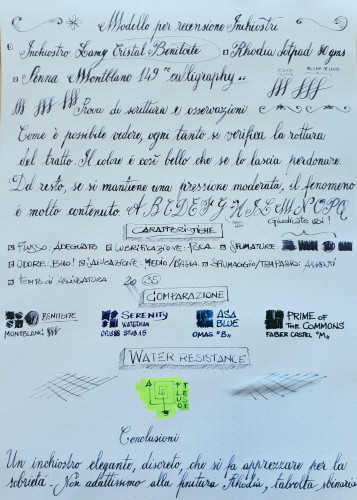 Modello per recensione Inchiostri
Inchiostro Lamy Cristal Benitoite Rhodia dotpad 80 gms
Penna Montblanc 149 "calligraphy"
Prova di scrittura e osservazioni
Come è possibile vedere, ogni tanto si verifica la rottura
del tratto. Il colore è così bello che se lo lascia perdonare.
Del resto, se si mantiene una pressione moderata, il fenomeno
è molto contenuto. A B C D E F G H I L M N O P Q
Giudicate voi!
CARATTERISTICHE
FLUSSO: ADEGUATO LUBRIFICAZIONE: POCA SFUMATURE:
ODORE: BHO! SATURAZIONE: MEDIO/BASSA SPIUMAGGIO/TRAPASSO: ASSENTI
TEMPO DI ASCIUGATURA: 20 35
COMPARAZIONE
BENITOITE SERENITY ASA PRIME OF
MONTBLANC WATERMAN BLUE THE COMMONS
OMAS "B" FABER CASTEL "M"
WATER RESISTANCE
Conclusioni
Un inchiostro elegante, discreto, che si fa apprezzare per la
sobrietà. Non adattissimo alla finitura Rhodia, talvolta sbinaria